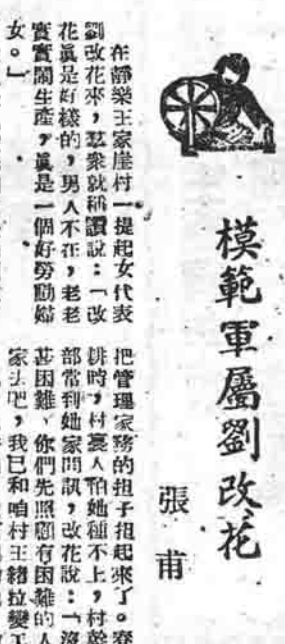 模範軍屬劉改花
張甫
在靜樂王家崖村一提起女代表
劉改花來,羣衆就稱讚說:「改
花眞是好樣的,男人不在,老老
實實鬧生產,眞是一個好勞動婦
女。」
把管理家務的担子担起來了。春
耕時,村裏人怕她種不上,村幹
部常到她家問訊,改花說:「沒
甚困難、你們先照顧有困難的人
家去吧,我已和咱村王緒拉變工